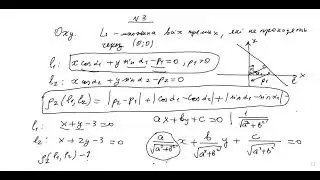 N 3
Oxy. L₁ - множина всіх прямих, які не проходять
через (0;0).
l₁: x cosα₁ + y sinα₁ - p₁ = 0, p₁ > 0
l₂: x cosα₂ + y sin α₂ - p₂ = 0
ρ₂(l₁, l₂) = |p₂ - p₁| + |cosα₂ - cosα₁| + |sinα₂ - sinα₁|
l₁: x + y - 3 = 0 ax + by + c = 0 | 1/√(a²+b²)
l₂: x + 2y - 3 = 0 a/√(a²+b²) x + b/√(a²+b²) y + c/√(a²+b²) = 0
(l₁, l₂) - ?